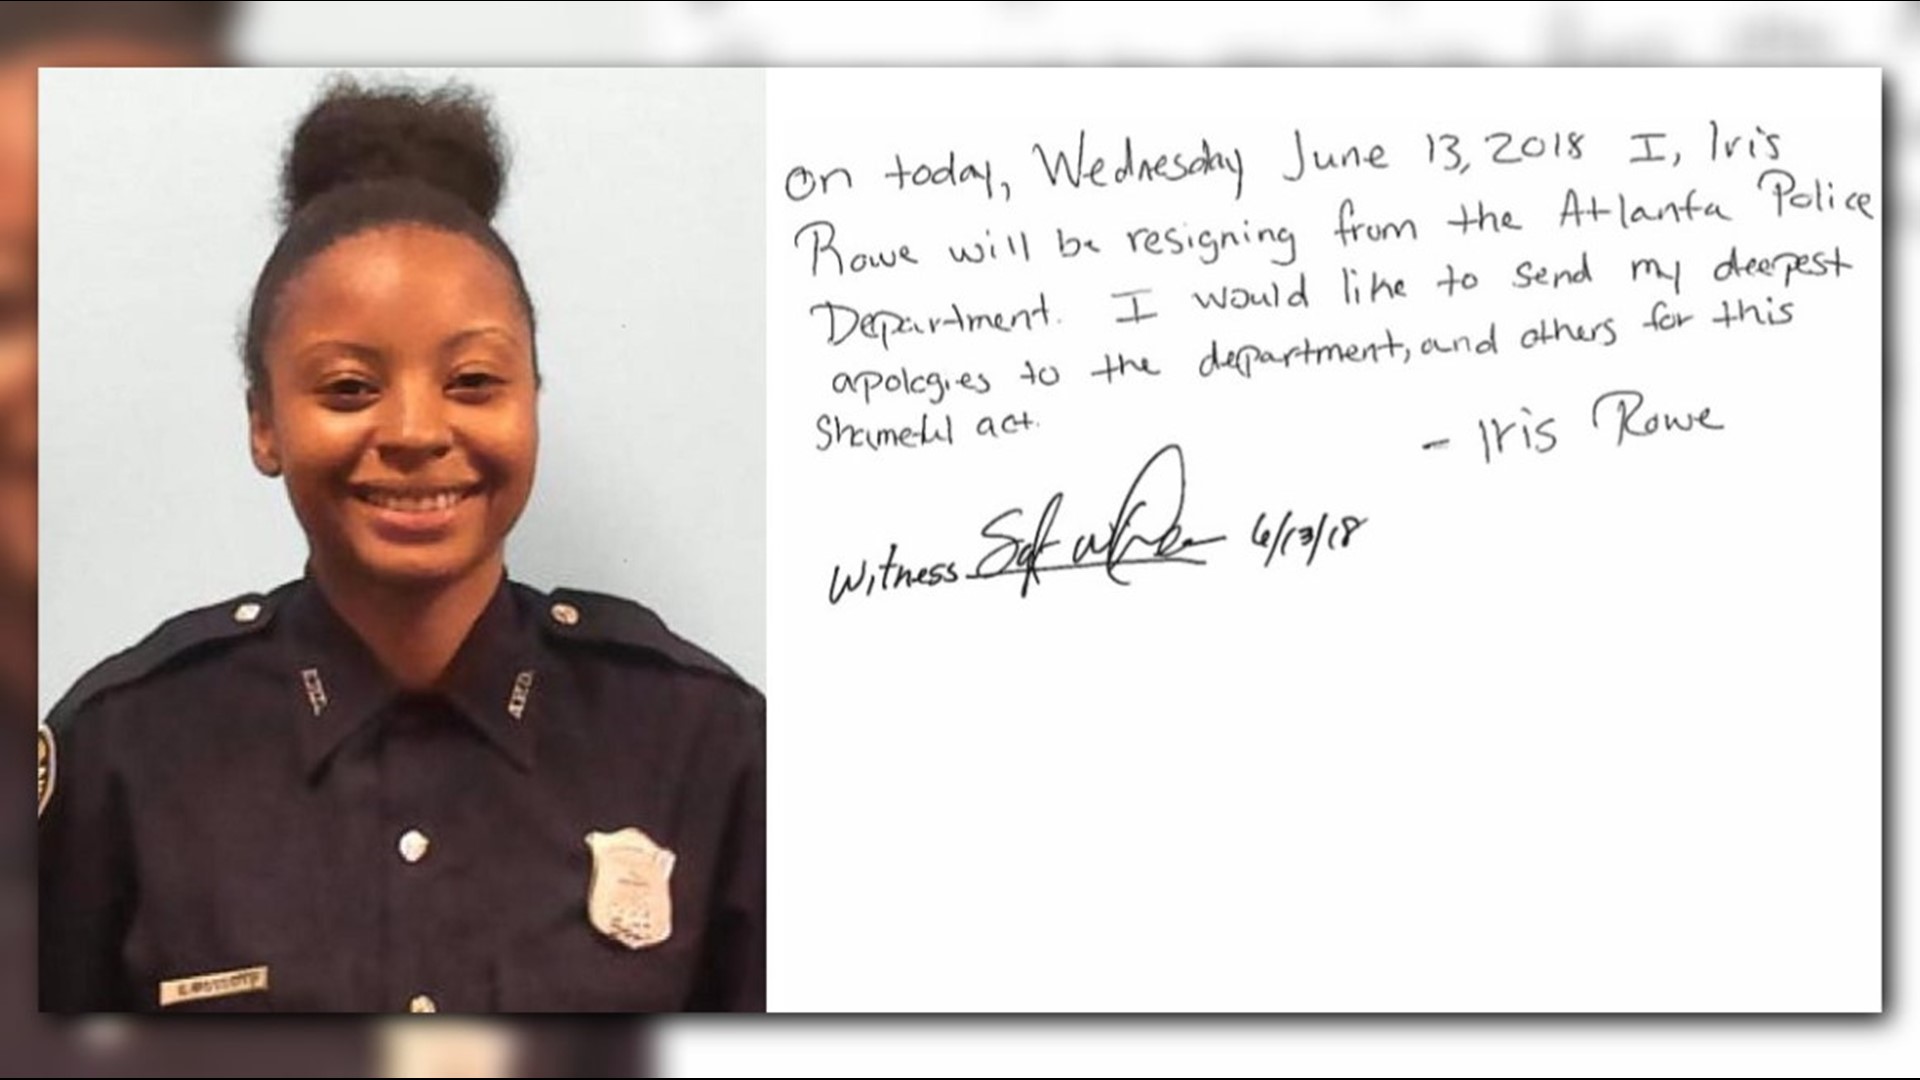 On today, Wednesday June 13, 2018 I, Iris
Rowe will be resigning from the Atlanta Police
Department. I would like to send my deepest
apologies to the department, and others for this
Shameful act.
- Iris Rowe
Witness Sgt 6/13/18
A.P.D.